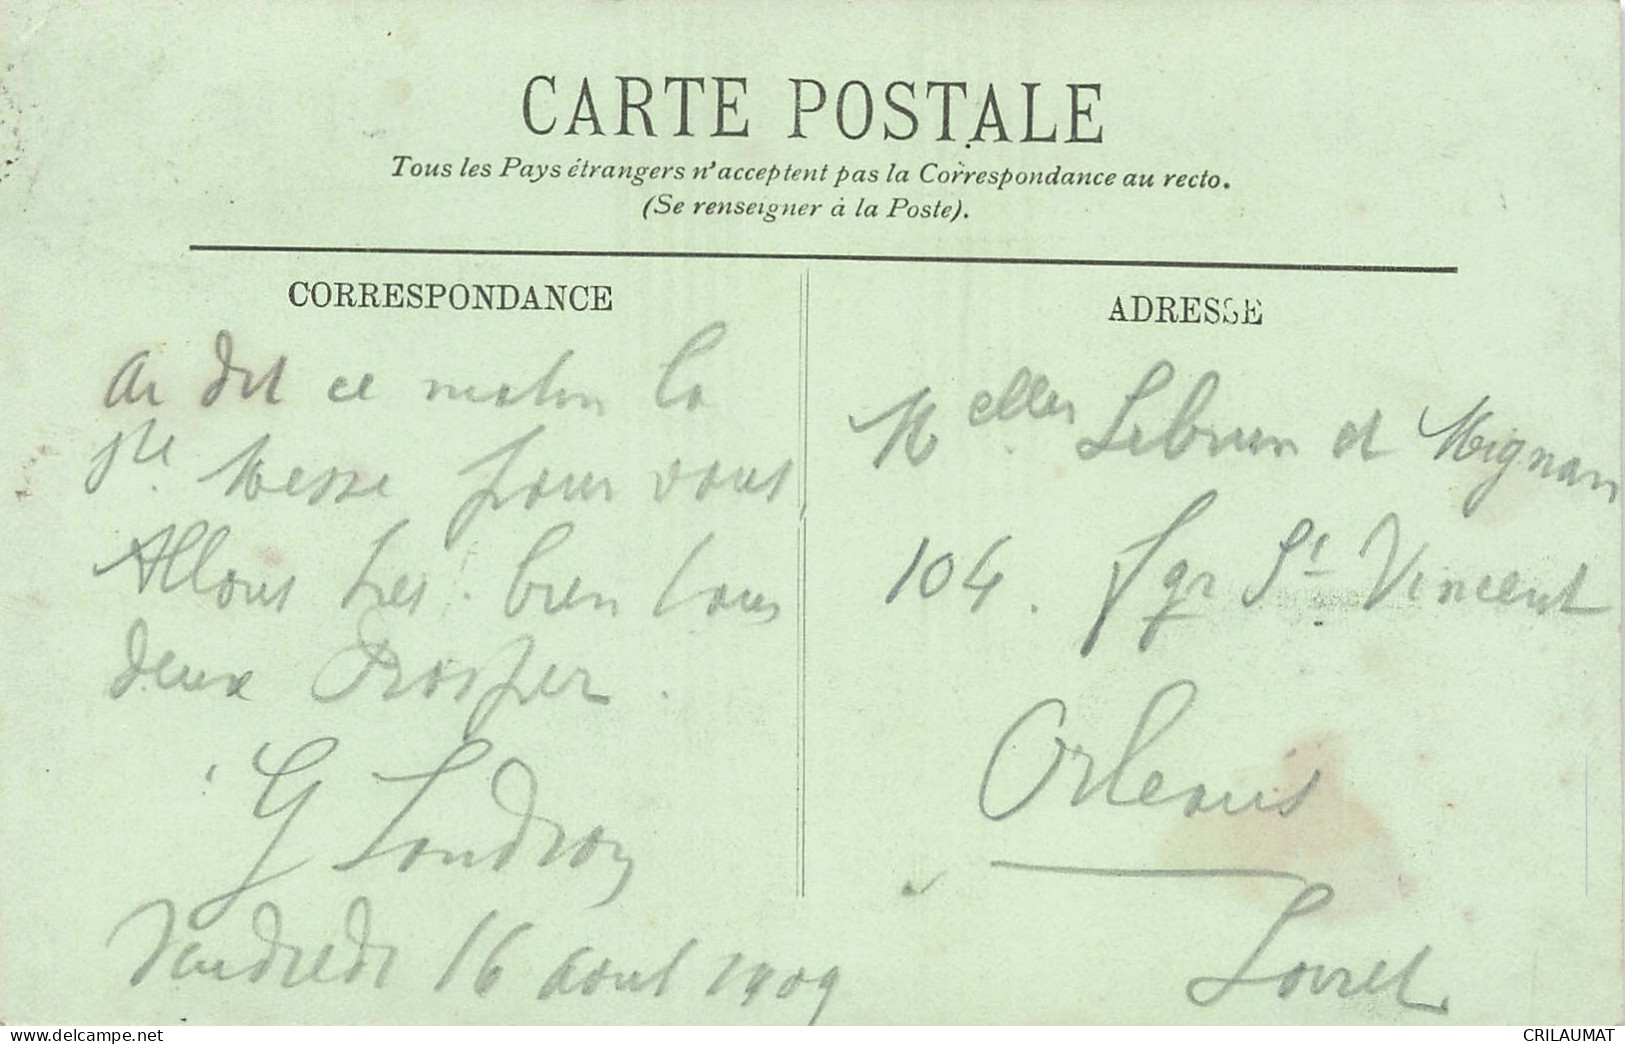 CARTE POSTALE
Tous les Pays étrangers n'acceptent pas la Correspondance au recto.
(Se renseigner à la Poste).
CORRESPONDANCE
Ai dit ce matin la
pte Messe pour vous
Allons très bien tous
deux Prosper.
G Landron
Vendredi 16 aout 1909
ADRESSE
Melles Lebrun et Mignan
104. fgr St Vincent
Orleans
Loiret
CRILAUMAT